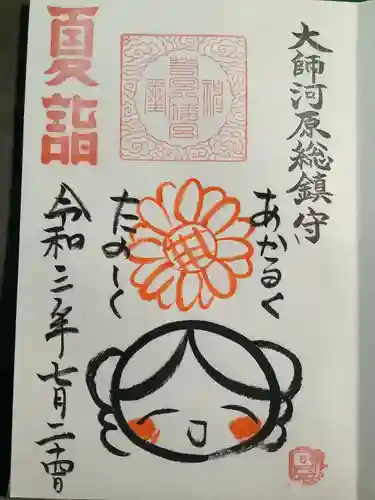 大師河原総鎮守
夏詣
あかるく
たのしく
令和三年七月二十四日